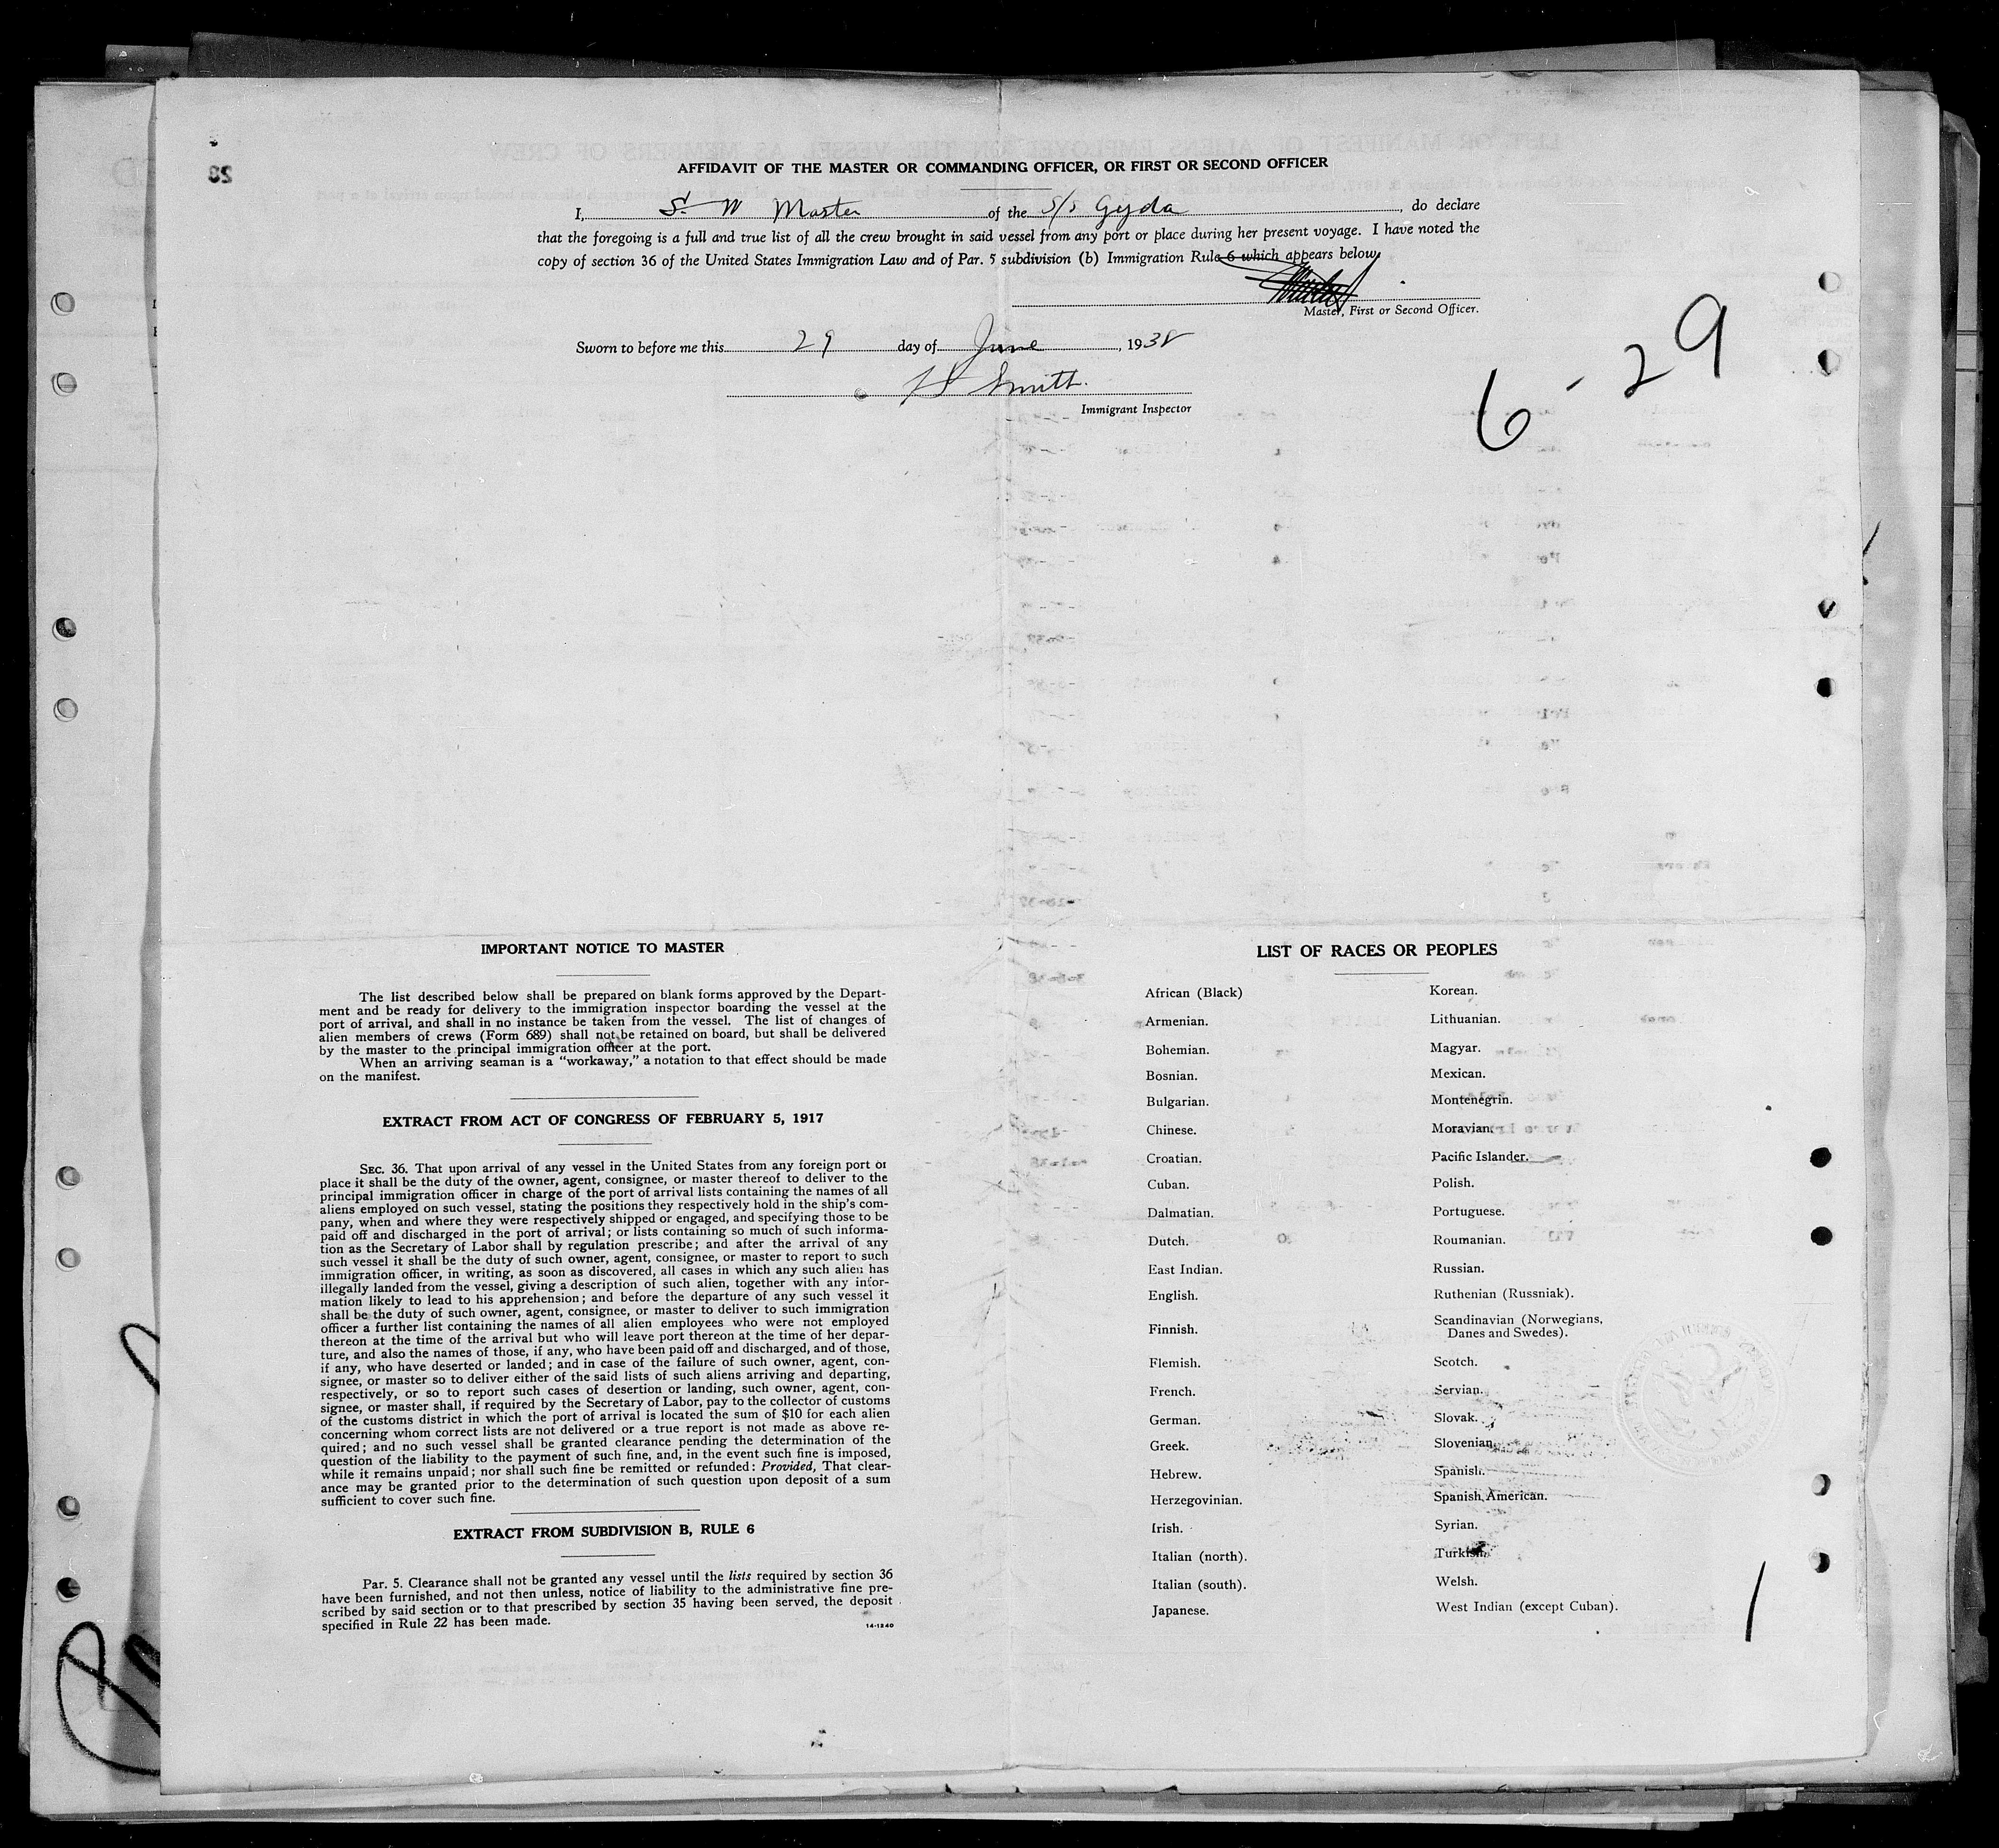 AFFIDAVIT OF THE MASTER OR COMMANDING OFFICER, OR FIRST OR SECOND OFFICER
I, Master of the S/S Gyda, do declare
that the foregoing is a full and true list of all the crew brought in said vessel from any port or place during her present voyage. I have noted the
copy of section 36 of the United States Immigration Law and of Par. 5 subdivision (b) Immigration Rule 6 which appears below.
Master, First or Second Officer.
Sworn to before me this 29 day of June, 1938
Smith.
Immigrant Inspector
6 - 29
IMPORTANT NOTICE TO MASTER
The list described below shall be prepared on blank forms approved by the Depart-
ment and be ready for delivery to the immigration inspector boarding the vessel at the
port of arrival, and shall in no instance be taken from the vessel. The list of changes of
alien members of crews (Form 689) shall not be retained on board, but shall be delivered
by the master to the principal immigration officer at the port.
When an arriving seaman is a "workaway," a notation to that effect should be made
on the manifest.
EXTRACT FROM ACT OF CONGRESS OF FEBRUARY 5, 1917
SEC. 36. That upon arrival of any vessel in the United States from any foreign port or
place it shall be the duty of the owner, agent, consignee, or master thereof to deliver to the
principal immigration officer in charge of the port of arrival lists containing the names of all
aliens employed on such vessel, stating the positions they respectively hold in the ship's com-
pany, when and where they were respectively shipped or engaged, and specifying those to be
paid off and discharged in the port of arrival; or lists containing so much of such informa-
tion as the Secretary of Labor shall by regulation prescribe; and after the arrival of any
such vessel it shall be the duty of such owner, agent, consignee, or master to report to such
immigration officer, in writing, as soon as discovered, all cases in which any such alien has
illegally landed from the vessel, giving a description of such alien, together with any infor-
mation likely to lead to his apprehension; and before the departure of any such vessel it
shall be the duty of such owner, agent, consignee, or master to deliver to such immigration
officer a further list containing the names of all alien employees who were not employed
thereon at the time of the arrival but who will leave port thereon at the time of her depar-
ture, and also the names of those, if any, who have been paid off and discharged, and of those,
if any, who have deserted or landed; and in case of the failure of such owner, agent, con-
signee, or master so to deliver either of the said lists of such aliens arriving and departing,
respectively, or so to report such cases of desertion or landing, such owner, agent, con-
signee, or master shall, if required by the Secretary of Labor, pay to the collector of customs
of the customs district in which the port of arrival is located the sum of $10 for each alien
concerning whom correct lists are not delivered or a true report is not made as above re-
quired; and no such vessel shall be granted clearance pending the determination of the
question of the liability to the payment of such fine, and, in the event such fine is imposed,
while it remains unpaid; nor shall such fine be remitted or refunded: Provided, That clear-
ance may be granted prior to the determination of such question upon deposit of a sum
sufficient to cover such fine.
EXTRACT FROM SUBDIVISION B, RULE 6
Par. 5. Clearance shall not be granted any vessel until the lists required by section 36
have been furnished, and not then unless, notice of liability to the administrative fine pre-
scribed by said section or to that prescribed by section 35 having been served, the deposit
specified in Rule 22 has been made.
14-1240
LIST OF RACES OR PEOPLES
African (Black)
Armenian.
Bohemian.
Bosnian.
Bulgarian.
Chinese.
Croatian.
Cuban.
Dalmatian.
Dutch.
East Indian.
English.
Finnish.
Flemish.
French.
German.
Greek.
Hebrew.
Herzegovinian.
Irish.
Italian (north).
Italian (south).
Japanese.
Korean.
Lithuanian.
Magyar.
Mexican.
Montenegrin.
Moravian.
Pacific Islander.
Polish.
Portuguese.
Roumanian.
Russian.
Ruthenian (Russniak).
Scandinavian (Norwegians,
Danes and Swedes).
Scotch.
Servian.
Slovak.
Slovenian.
Spanish.
Spanish American.
Syrian.
Turkish.
Welsh.
West Indian (except Cuban).
1